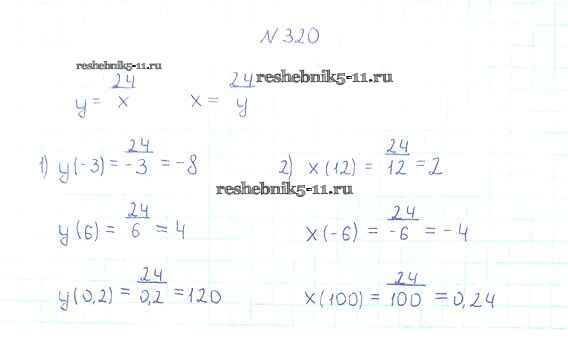 N 320
reshebnik5-11.ru
y = 24/x    x = 24/y reshebnik5-11.ru
1) y(-3) = 24/-3 = -8    2) x(12) = 24/12 = 2
reshebnik5-11.ru
y(6) = 24/6 = 4    x(-6) = 24/-6 = -4
y(0,2) = 24/0,2 = 120    x(100) = 24/100 = 0,24